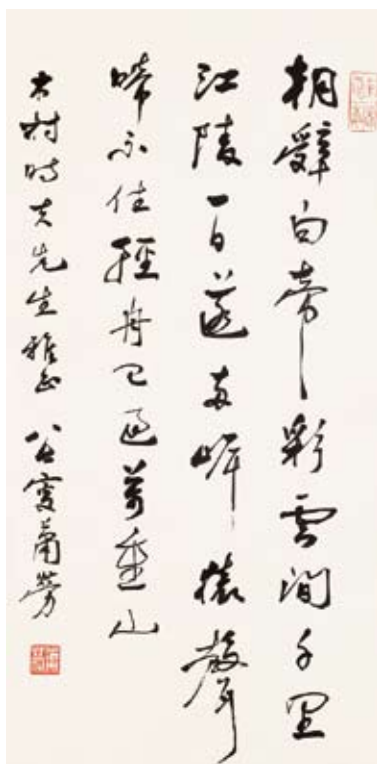 朝辭白帝彩雲間千里
江陵一日還兩岸猿聲
啼不住輕舟已過萬重山
木村時夫先生雅正 蕭勞